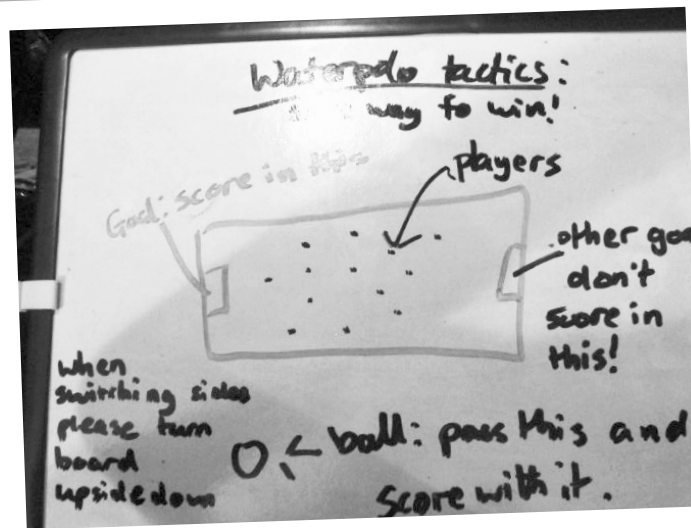 Waterpolo tactics:
way to win!
players
Goal: score in this
other goa
don't
score in
this!
when
switching sides
please turn
board
upsidedown
ball: pass this and
score with it.